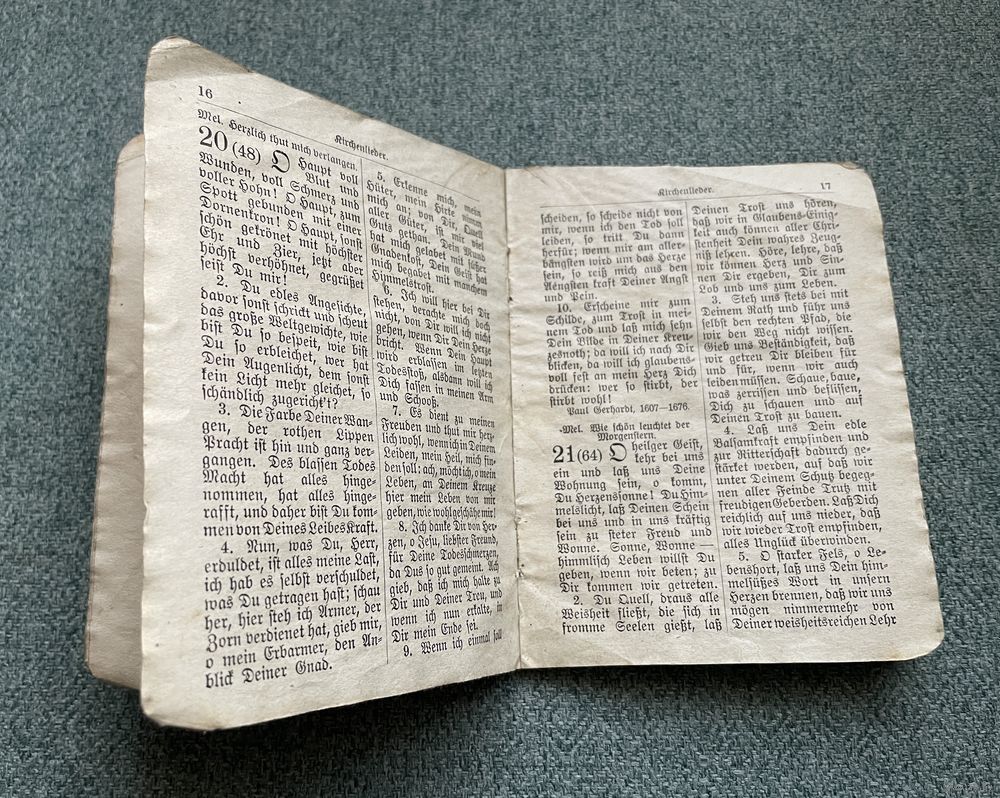 16
Kirchenlieder.
Mel. Herzlich thut mich verlangen.
20 (48) O Haupt voll
Blut und
Wunden, voll Schmerz und
voller Hohn! O Haupt, zum
Spott gebunden mit einer
Dornenkron! O Haupt, sonst
schön gekrönet mit höchster
Ehr und Zier, jetzt aber
höchst verhöhnet, gegrüßet
seist Du mir!
2. Du edles Angesichte,
davor sonst schrickt und scheut
das große Weltgewichte, wie
bist Du so bespeit, wie bist
Du so erbleichet, wer hat
Dein Augenlicht, dem sonst
kein Licht mehr gleichet, so
schändlich zugericht't?
3. Die Farbe Deiner Wan-
gen, der rothen Lippen
Pracht ist hin und ganz ver-
gangen. Des blassen Todes
Macht hat alles hinge-
nommen, hat alles hinge-
rafft, und daher bist Du kom-
men von Deines Leibes Kraft.
4. Nun, was Du, Herr,
erduldet, ist alles meine Last,
ich hab es selbst verschuldet,
was Du getragen hast; schau
her, hier steh ich Armer, der
Zorn verdienet hat, gieb mir,
o mein Erbarmer, den An-
blick Deiner Gnad.
5. Erkenne mich, mein
Hüter, mein Hirte nimm
mich an; von Dir, Quell
aller Güter, ist mir viel
Guts gethan. Dein Mund
hat mich gelabet mit süßer
Gnadenkost, Dein Geist hat
mich begabet mit manchem
Himmelstrost.
6. Ich will hier bei Dir
stehen, verachte mich doch
nicht, von Dir will ich nicht
gehen, wenn Dir Dein Herze
bricht. Wenn Dein Haupt
wird erblassen im letzten
Todesstoß, alsdann will ich
Dich fassen in meinen Arm
und Schooß.
7. Es dient zu meinen
Freuden und thut mir herz-
lich wohl, wenn ich in Deinem
Leiden, mein Heil, mich fin-
den soll: ach, möcht ich, o mein
Leben, an Deinem Kreuze
hier mein Leben von mir
geben, wie wohl geschähe mir!
8. Ich danke Dir von Her-
zen, o Jesu, liebster Freund,
für Deine Todesschmerzen,
da Dus so gut gemeint. Ach
gieb, daß ich mich halte zu
Dir und Deiner Treu, und
wenn ich nun erkalte, in
Dir mein Ende sei.
9. Wenn ich einmal soll
Kirchenlieder.
17
scheiden, so scheide nicht von
mir, wenn ich den Tod soll
leiden, so tritt Du dann
herfür; wenn mir am aller-
bängsten wird um das Herze
sein, so reiß mich aus den
Aengsten kraft Deiner Angst
und Pein.
10. Erscheine mir zum
Schilde, zum Trost in mei-
nem Tod und laß mich sehn
Dein Bilde in Deiner Kreu-
zesnoth; da will ich nach Dir
blicken, da will ich glaubens-
voll fest an mein Herz Dich
drücken: wer so stirbt, der
stirbt wohl!
Paul Gerhardt, 1607—1676.
Mel. Wie schön leuchtet der
Morgenstern.
21 (64) O heilger Geist,
kehr bei uns
ein und laß uns Deine
Wohnung sein, o komm,
Du Herzenssonne! Du Him-
melslicht, laß Deinen Schein
bei uns und in uns kräftig
sein zu steter Freud und
Wonne. Sonne, Wonne —
himmlisch Leben willst Du
geben, wenn wir beten; zu
Dir kommen wir getreten.
2. Du Quell, draus alle
Weisheit fließt, die sich in
fromme Seelen gießt, laß
Deinen Trost uns hören,
daß wir in Glaubens-Einig-
keit auch können aller Chri-
stenheit Dein wahres Zeug-
niß lehren. Höre, lehre, daß
wir können Herz und Sin-
nen Dir ergeben, Dir zum
Lob und uns zum Leben.
3. Steh uns stets bei mit
Deinem Rath und führ uns
selbst den rechten Pfad, die
wir den Weg nicht wissen.
Gieb uns Beständigkeit, daß
wir getreu Dir bleiben für
und für, wenn wir auch
leiden müssen. Schaue, baue,
was zerrissen und beflissen,
Dich zu schauen und auf
Deinen Trost zu bauen.
4. Laß uns Dein edle
Balsamkraft empfinden und
zur Ritterschaft dadurch ge-
stärket werden, auf daß wir
unter Deinem Schutz begeg-
nen aller Feinde Trutz mit
freudigen Geberden. Laß Dich
reichlich auf uns nieder, daß
wir wieder Trost empfinden,
alles Unglück überwinden.
5. O starker Fels, o Le-
benshort, laß uns Dein him-
melsüßes Wort in unsern
Herzen brennen, daß wir uns
mögen nimmermehr von
Deiner weisheitsreichen Lehr